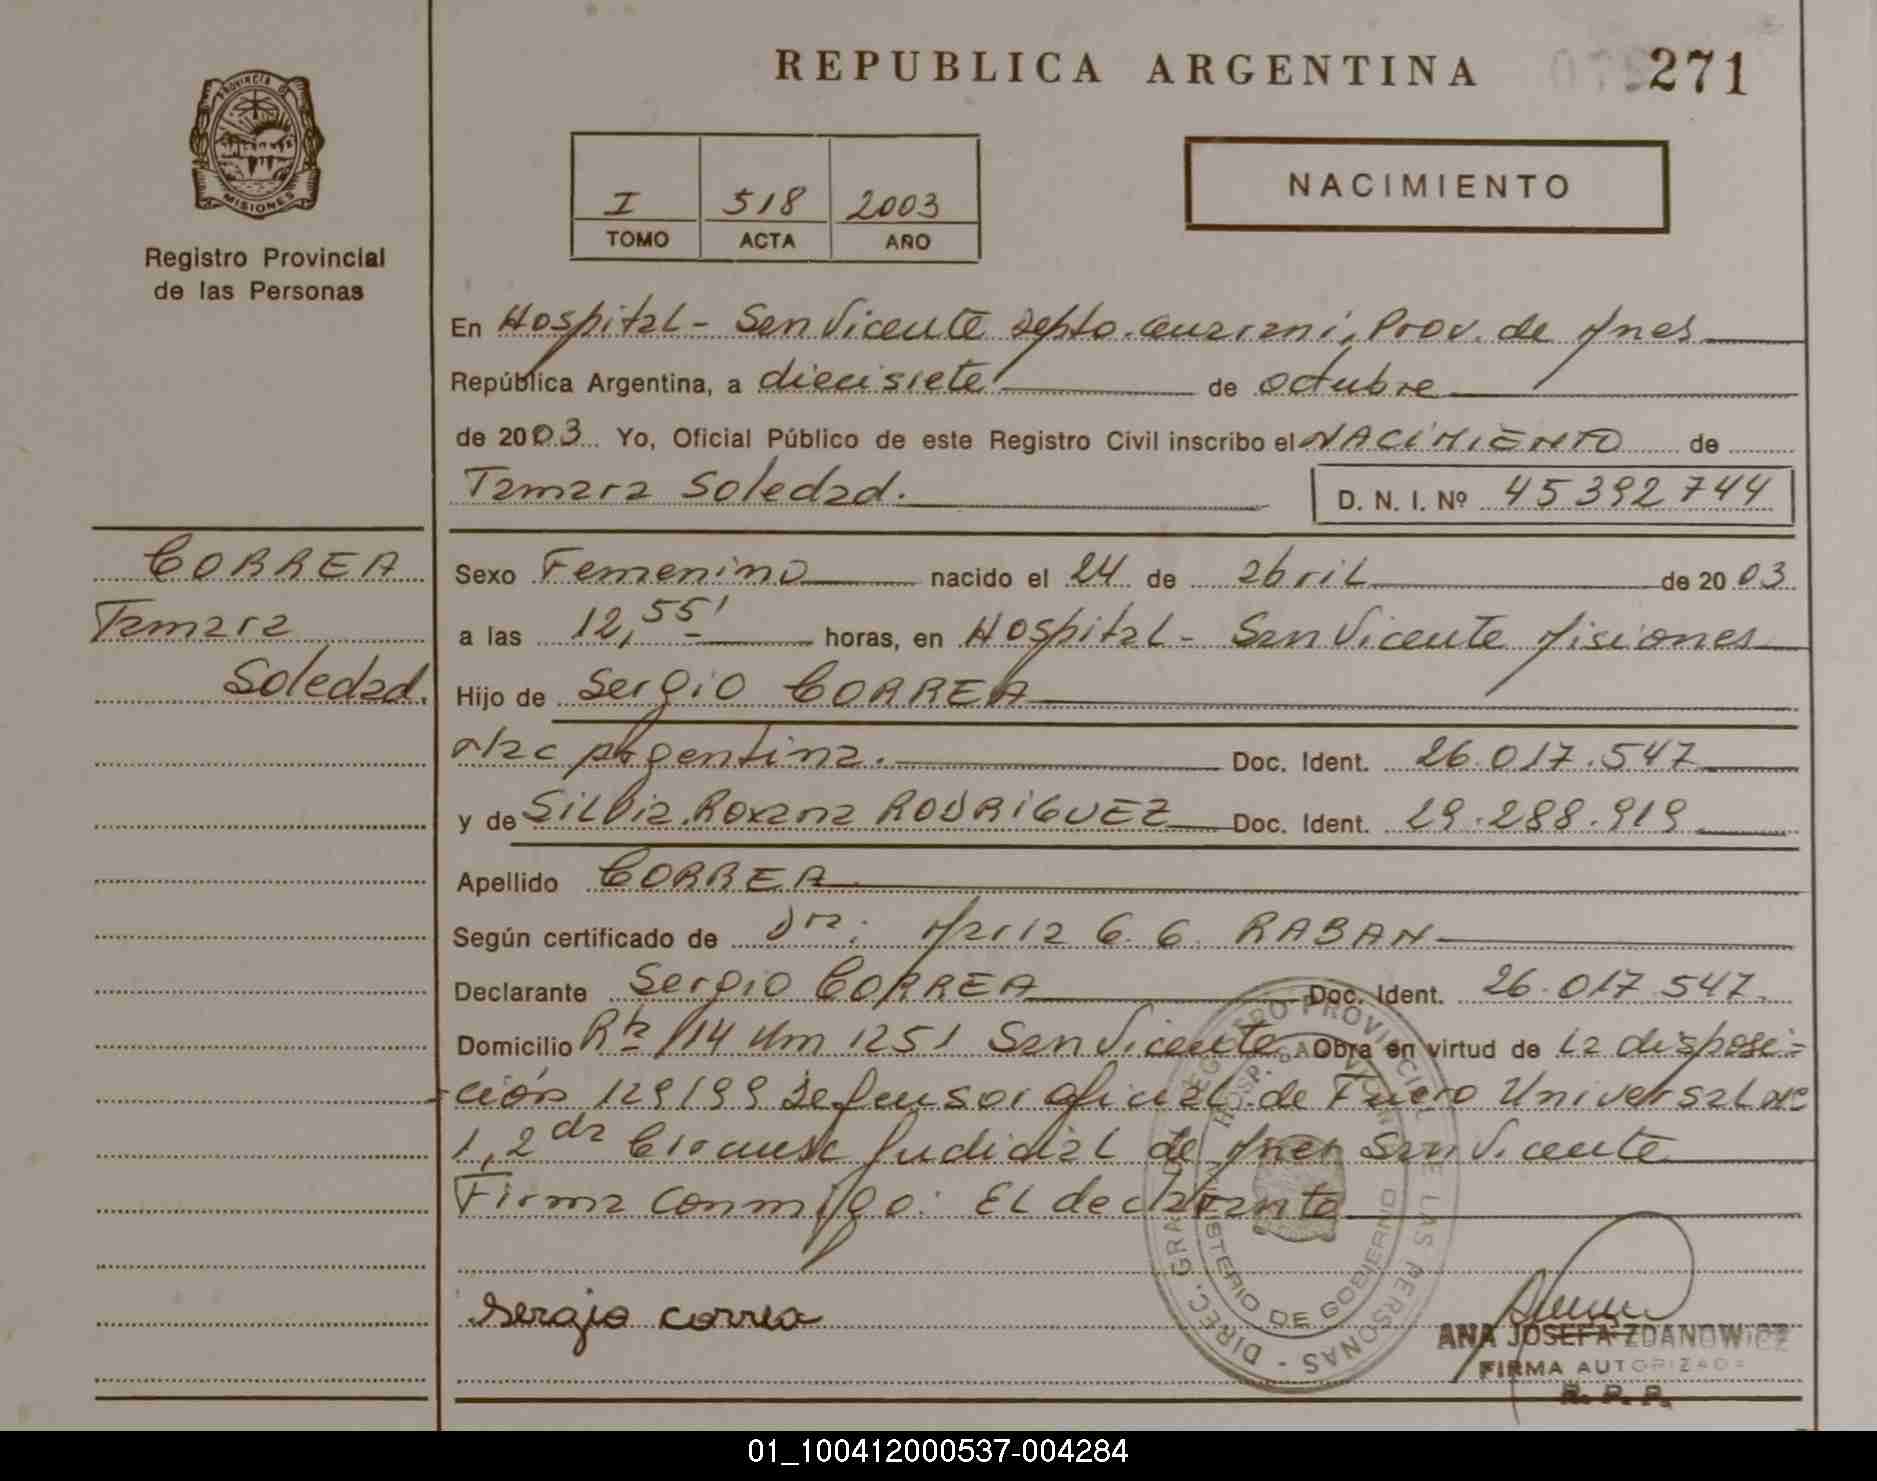 REPUBLICA ARGENTINA 271
PROVINCIA DE
MISIONES
Registro Provincial
de las Personas
I 518 2003
TOMO ACTA AÑO
NACIMIENTO
En Hospital - San Vicente Depto. Guarani, Prov. de Mnes
República Argentina, a diecisiete de octubre
de 2003 Yo, Oficial Público de este Registro Civil inscribo el NACIMIENTO de
Tamara Soledad.
D. N. I. Nº 45392744
CORREA
Tamara
Soledad.
Sexo Femenino nacido el 24 de abril de 2003
a las 12,55' horas, en Hospital - San Vicente Misiones
Hijo de Sergio CORREA
Nac Argentina. Doc. Ident. 26.017.547
y de Silvia Roxana RODRIGUEZ Doc. Ident. 29.288.919
Apellido CORREA
Según certificado de Dra. Maria G. G. RABAN
Declarante Sergio CORREA Doc. Ident. 26.017.547.
Domicilio Rta 14 Km 1251 San Vicente Obra en virtud de la disposi=
-ción 129/99 Defensor oficial de Fuero Universal Nº
1, 2da Circunsc Judicial de Mnes San Vicente
Firma Conmigo: El declarante
Sergio Correa
DIREC. GRAL. DEL REGISTRO PROVINCIAL DE LAS PERSONAS -
HOSP. SAN VICENTE
MINISTERIO DE GOBIERNO
ANA JOSEFA ZDANOWICZ
FIRMA AUTORIZADA
R. P. P.
01_100412000537-004284